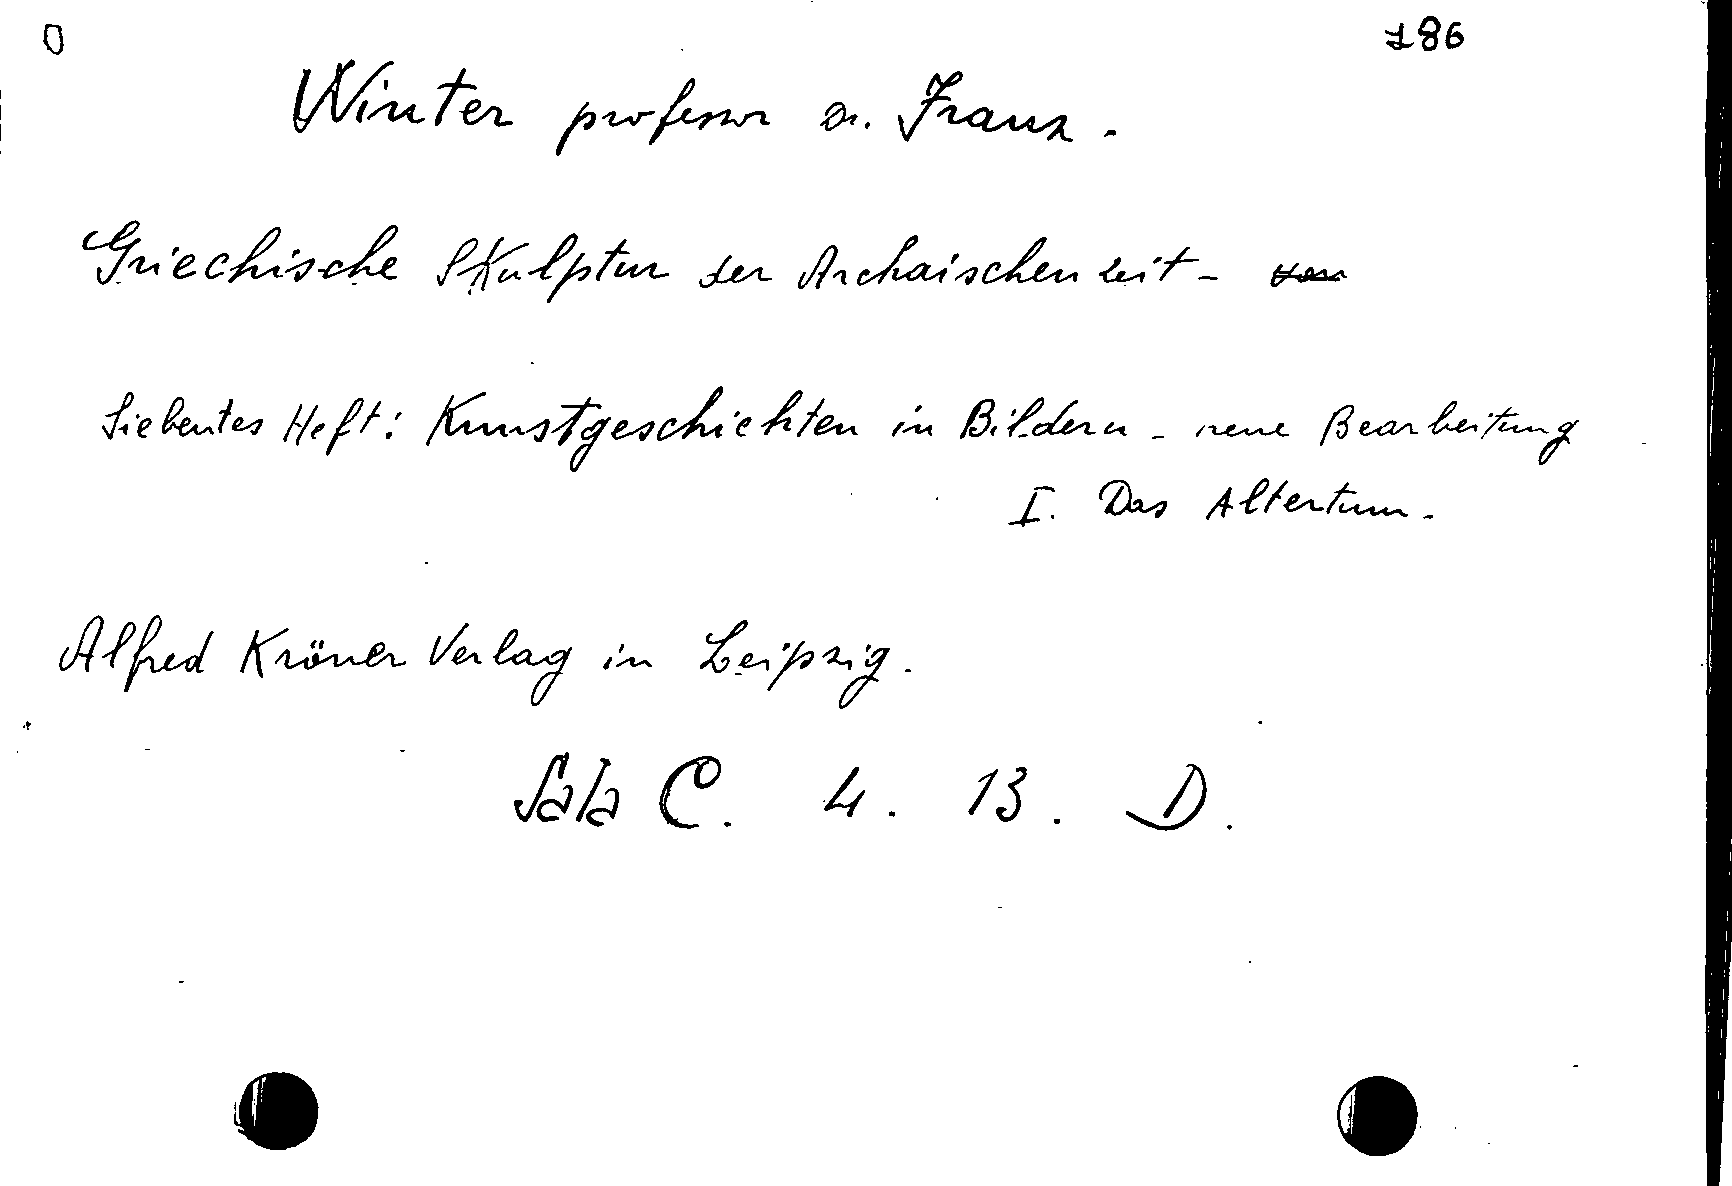 0 186
Winter professor Dr. Franz.
Griechische Skulptur der Archaischen zeit -
Siebentes Heft: Kunstgeschichten in Bildern - neue Bearbeitung
I. Das Altertum.
Alfred Kröner Verlag in Leipzig.
Sala C. 4. 13. D.